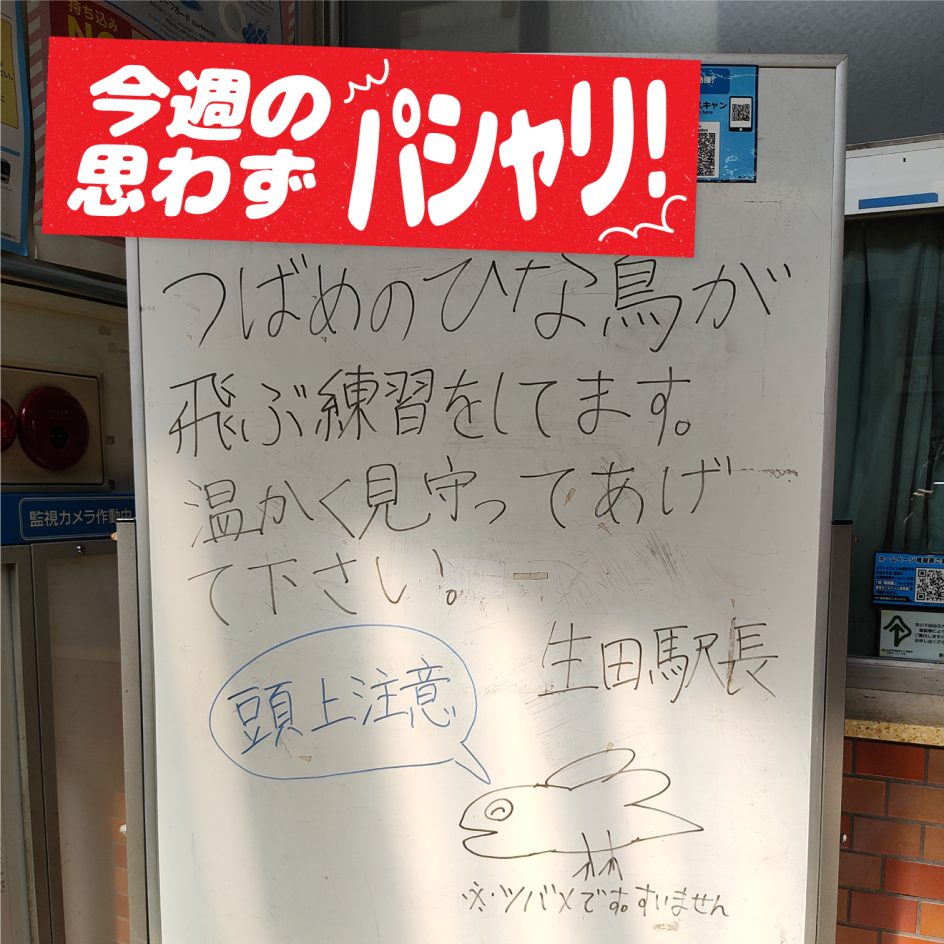 持ち込み
今週の
思わず
パシャリ!
つばめのひな鳥が
飛ぶ練習をしてます。
温かく見守ってあげ
て下さい。
生田駅長
頭上注意
※ツバメです。すいません
監視カメラ作動中